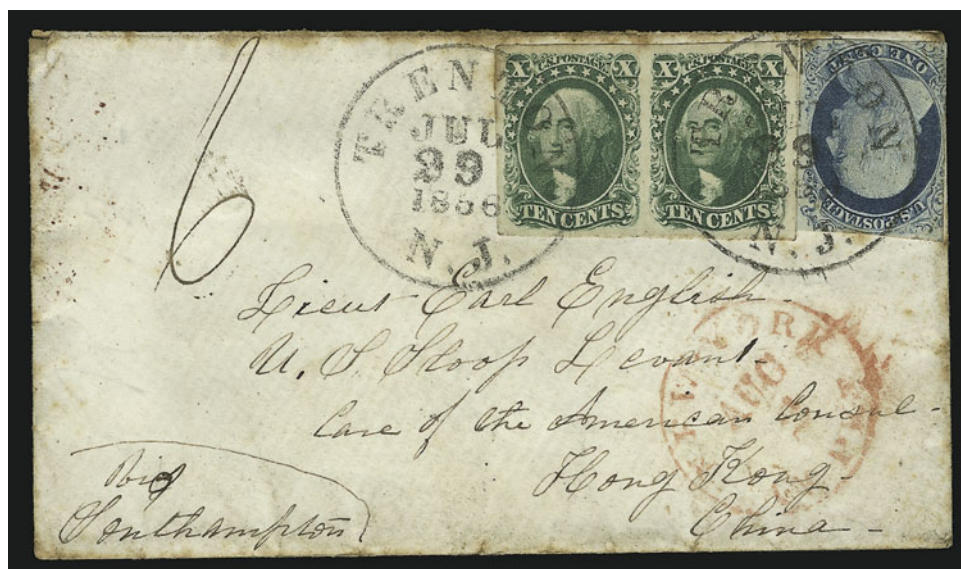 6
TRENTON
JUL
29
1856
N.J.
X U.S. POSTAGE X
TEN CENTS
X U.S. POSTAGE X
TEN CENTS
TRENTON
JUL
N.J.
U.S. POSTAGE
ONE CENT
Lieut Earl English
U. S. Sloop Levant
Care of the American Consul
Hong Kong
China
NEW YORK
AUG
Via
Southampton